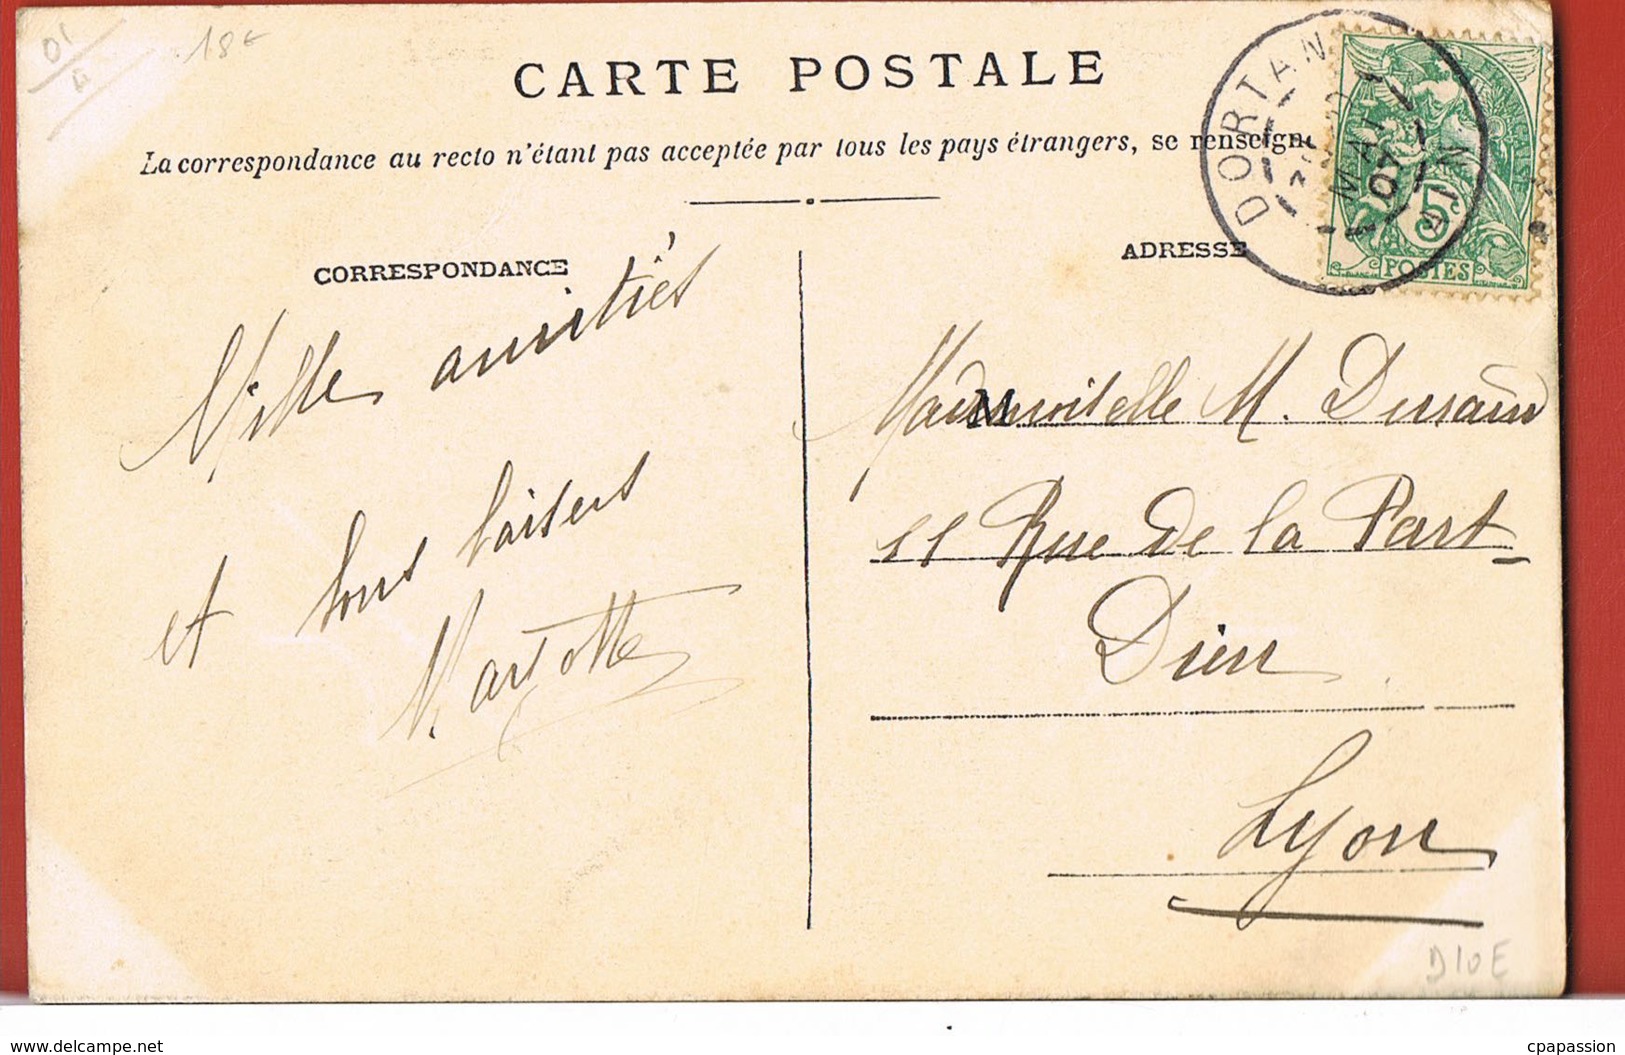 01
18€
CARTE POSTALE
La correspondance au recto n'étant pas acceptée par tous les pays étrangers, se renseigne
CORRESPONDANCE
ADRESSE
DORTAN
AIN
MAI
07
5c
POSTES
Mille amitiés
et bons baisers
Mademoiselle M. Durand
11 Rue de la Part-
Dieu
Lyon
D10E
www.delcampe.net
cpapassion